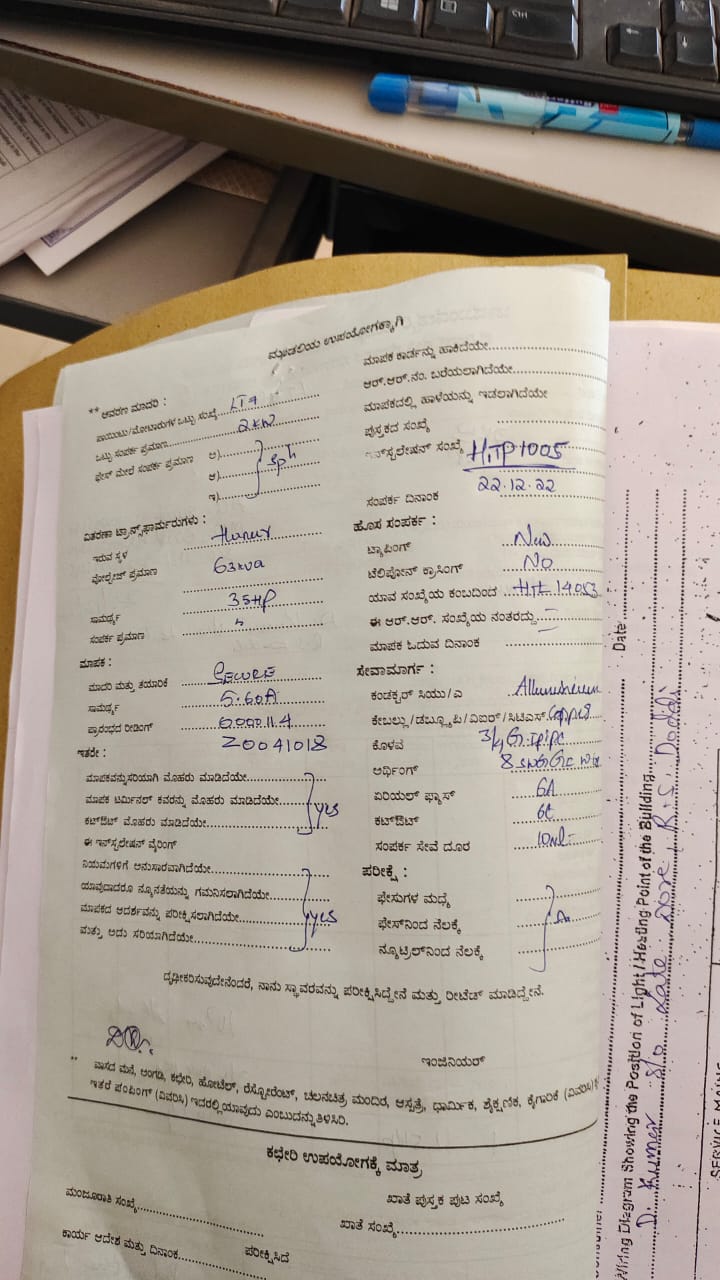 ಮಂಡಲಿಯ ಉಪಯೋಗಕ್ಕಾಗಿ
** ಆವರಣ ಮಾದರಿ :
ಪಾಯಿಂಟು/ಮೋಟಾರುಗಳ ಒಟ್ಟು ಸಂಖ್ಯೆ
ಒಟ್ಟು ಸಂಪರ್ಕ ಪ್ರಮಾಣ.......... 2KW
ಫೇಸ್ ಮೇಲೆ ಸಂಪರ್ಕ ಪ್ರಮಾಣ ಅ)
ಆ) 3ph
ಇ)
ವಿತರಣಾ ಟ್ರಾನ್ಸ್‌ಫಾರ್ಮರುಗಳು :
ಇರುವ ಸ್ಥಳ Hanur
ವೋಲ್ಟೇಜ್ ಪ್ರಮಾಣ 63kva
ಸಾಮರ್ಥ್ಯ 35HP
ಸಂಪರ್ಕ ಪ್ರಮಾಣ
ಮಾಪಕ :
ಮಾದರಿ ಮತ್ತು ತಯಾರಿಕೆ SECURE
ಸಾಮರ್ಥ್ಯ 5-60A
ಪ್ರಾರಂಭದ ರೀಡಿಂಗ್
Z0041018
ಇತರೇ :
ಮಾಪಕವನ್ನು ಸರಿಯಾಗಿ ಮೊಹರು ಮಾಡಿದೆಯೇ..........
ಮಾಪಕ ಟರ್ಮಿನಲ್ ಕವರನ್ನು ಮೊಹರು ಮಾಡಿದೆಯೇ.......... yes
ಕಟ್‌ಔಟ್ ಮೊಹರು ಮಾಡಿದೆಯೇ..........
ಈ ಇನ್‌ಸ್ಟಲೇಷನ್ ವೈರಿಂಗ್
ನಿಯಮಗಳಿಗೆ ಅನುಸಾರವಾಗಿದೆಯೇ..........
ಯಾವುದಾದರೂ ನ್ಯೂನತೆಯನ್ನು ಗಮನಿಸಲಾಗಿದೆಯೇ..........
ಮಾಪಕದ ಆದರ್ಶವನ್ನು ಪರೀಕ್ಷಿಸಲಾಗಿದೆಯೇ.......... yes
ಮತ್ತು ಅದು ಸರಿಯಾಗಿದೆಯೇ..........
ಮಾಪಕ ಕಾರ್ಡನ್ನು ಹಾಕಿದೆಯೇ..........
ಆರ್.ಆರ್.ನಂ. ಬರೆಯಲಾಗಿದೆಯೇ..........
ಮಾಪಕದಲ್ಲಿ ಹಾಳೆಯನ್ನು ಇಡಲಾಗಿದೆಯೇ
ಪುಸ್ತಕದ ಸಂಖ್ಯೆ
ಇನ್‌ಸ್ಟಲೇಷನ್ ಸಂಖ್ಯೆ HTP1005
ಸಂಪರ್ಕ ದಿನಾಂಕ 22.12.22
ಹೊಸ ಸಂಪರ್ಕ :
ಟ್ಯಾಪಿಂಗ್ New
ಟೆಲಿಫೋನ್ ಕ್ರಾಸಿಂಗ್ No
ಯಾವ ಸಂಖ್ಯೆಯ ಕಂಬದಿಂದ
ಈ ಆರ್.ಆರ್. ಸಂಖ್ಯೆಯ ನಂತರದ್ದು
ಮಾಪಕ ಓದುವ ದಿನಾಂಕ
ಸೇವಾಮಾರ್ಗ :
ಕಂಡಕ್ಟರ್ ಸಿಯು/ಎ
ಕೇಬಲ್ಲು/ಡಬ್ಲ್ಯೂಪಿ/ವಿಐಆರ್/ಸಿಟಿಎಸ್
ಕೊಳವೆ
ಅರ್ಥಿಂಗ್
ಏರಿಯಲ್ ಫ್ಯೂಸ್ 6A
ಕಟ್‌ಔಟ್
ಸಂಪರ್ಕ ಸೇವೆ ದೂರ
ಪರೀಕ್ಷೆ :
ಫೇಸುಗಳ ಮಧ್ಯೆ
ಫೇಸ್‌ನಿಂದ ನೆಲಕ್ಕೆ
ನ್ಯೂಟ್ರಲ್‌ನಿಂದ ನೆಲಕ್ಕೆ
ದೃಢೀಕರಿಸುವುದೇನೆಂದರೆ, ನಾನು ಸ್ಥಾವರವನ್ನು ಪರೀಕ್ಷಿಸಿದ್ದೇನೆ ಮತ್ತು ರೀಟೆಡ್ ಮಾಡಿದ್ದೇನೆ.
ಇಂಜಿನಿಯರ್
** ವಾಸದ ಮನೆ, ಅಂಗಡಿ, ಕಛೇರಿ, ಹೋಟೆಲ್, ರೆಸ್ಟೋರೆಂಟ್, ಚಲನಚಿತ್ರ ಮಂದಿರ, ಆಸ್ಪತ್ರೆ, ಧಾರ್ಮಿಕ, ಶೈಕ್ಷಣಿಕ, ಕೈಗಾರಿಕೆ (ವಿವರಿಸಿ)
ಇತರೆ ಪಂಪಿಂಗ್ (ವಿವರಿಸಿ) ಇದರಲ್ಲಿ ಯಾವುದು ಎಂಬುದನ್ನು ತಿಳಿಸಿರಿ.
ಕಛೇರಿ ಉಪಯೋಗಕ್ಕೆ ಮಾತ್ರ
ಮಂಜೂರಾತಿ ಸಂಖ್ಯೆ..........
ಖಾತೆ ಪುಸ್ತಕ ಪುಟ ಸಂಖ್ಯೆ
ಖಾತೆ ಸಂಖ್ಯೆ..........
ಕಾರ್ಯ ಆದೇಶ ಮತ್ತು ದಿನಾಂಕ..........
ಪರೀಕ್ಷಿಸಿದೆ
Date
Wiring Diagram Showing the Position of Light / Heating Point of the Building
D. Kumar S/o Late
SERVICE MAINS
Ctrl